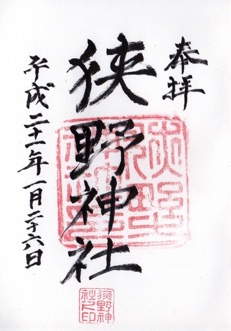 奉拝
狭野神社
平成二十一年一月二十六日
狭野神
社之印